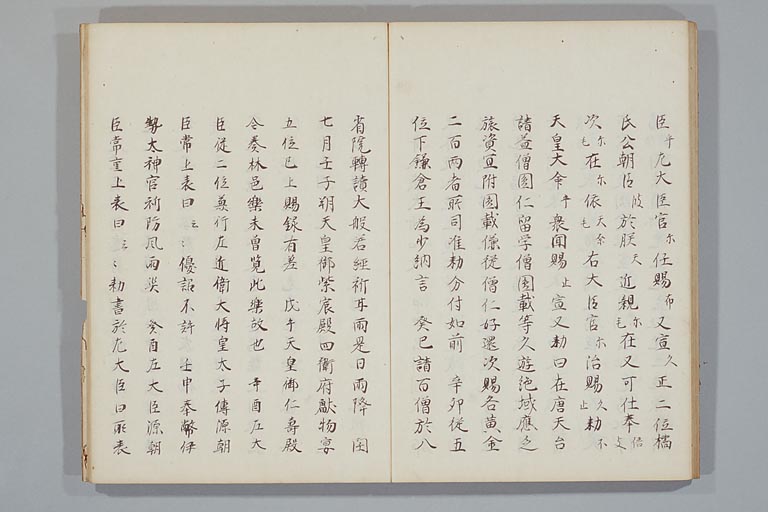 臣乎左大臣官尓任賜布又宣久正二位橘
氏公朝臣波於朕天近親尓毛在又可仕奉倍支
次尓毛在尓依天奈毛右大臣官尓治賜久止勅不
天皇大命乎衆聞賜止宣又勅曰在唐天台
請益僧圓仁留学僧圓載等久遊絶域應乏
旅資宜附圓載傔従僧仁好還次賜各黄金
二百両者所司准勅分付如前 辛卯従五
位下鎌倉王為少納言 癸巳請百僧於八
省院轉讀大般若經祈耳雨是日雨降 閏
七月壬子朔天皇御紫宸殿四衛府獻物宴
五位已上賜録有差 戊午天皇御仁壽殿
令奏林邑樂未曽覧此樂故也 辛酉左大
臣従二位兼行左近衛大将皇太子傅源朝
臣常上表曰云〻優詔不許 壬申奉幣伊
勢太神宮祈防風雨災 癸酉左大臣源朝
臣常重上表曰云〻勅書於左大臣曰所表